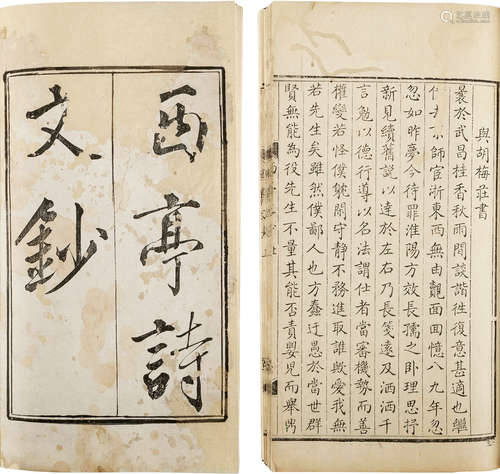 西亭詩
文鈔
與胡梅莊書
曩於武昌桂香秋雨間談諧性復意甚適也繼
師宦浙東西無由覿面回憶八九年忽
忽如昨夢今待罪淮陽方效長孺之卧理思抒
新見續舊說以達於左右乃長箋遠及洒洒千
言勉以德行導以名法謂仕者當審機勢而善
權變若怪僕範閑守靜不務進取誰歟愛我無
若先生矣雖然僕鄙人也方蠢迂愚於當世群
賢無能為役先生不量其能否責嬰兒而舉